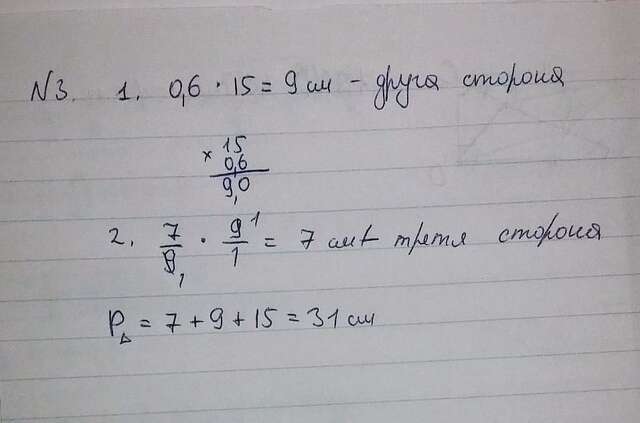 N3. 1. 0,6 · 15 = 9 см - друга сторона
× 15
0,6
9,0
2. 7/9 1 · 9 1/1 = 7 см - третя сторона
P△ = 7 + 9 + 15 = 31 см